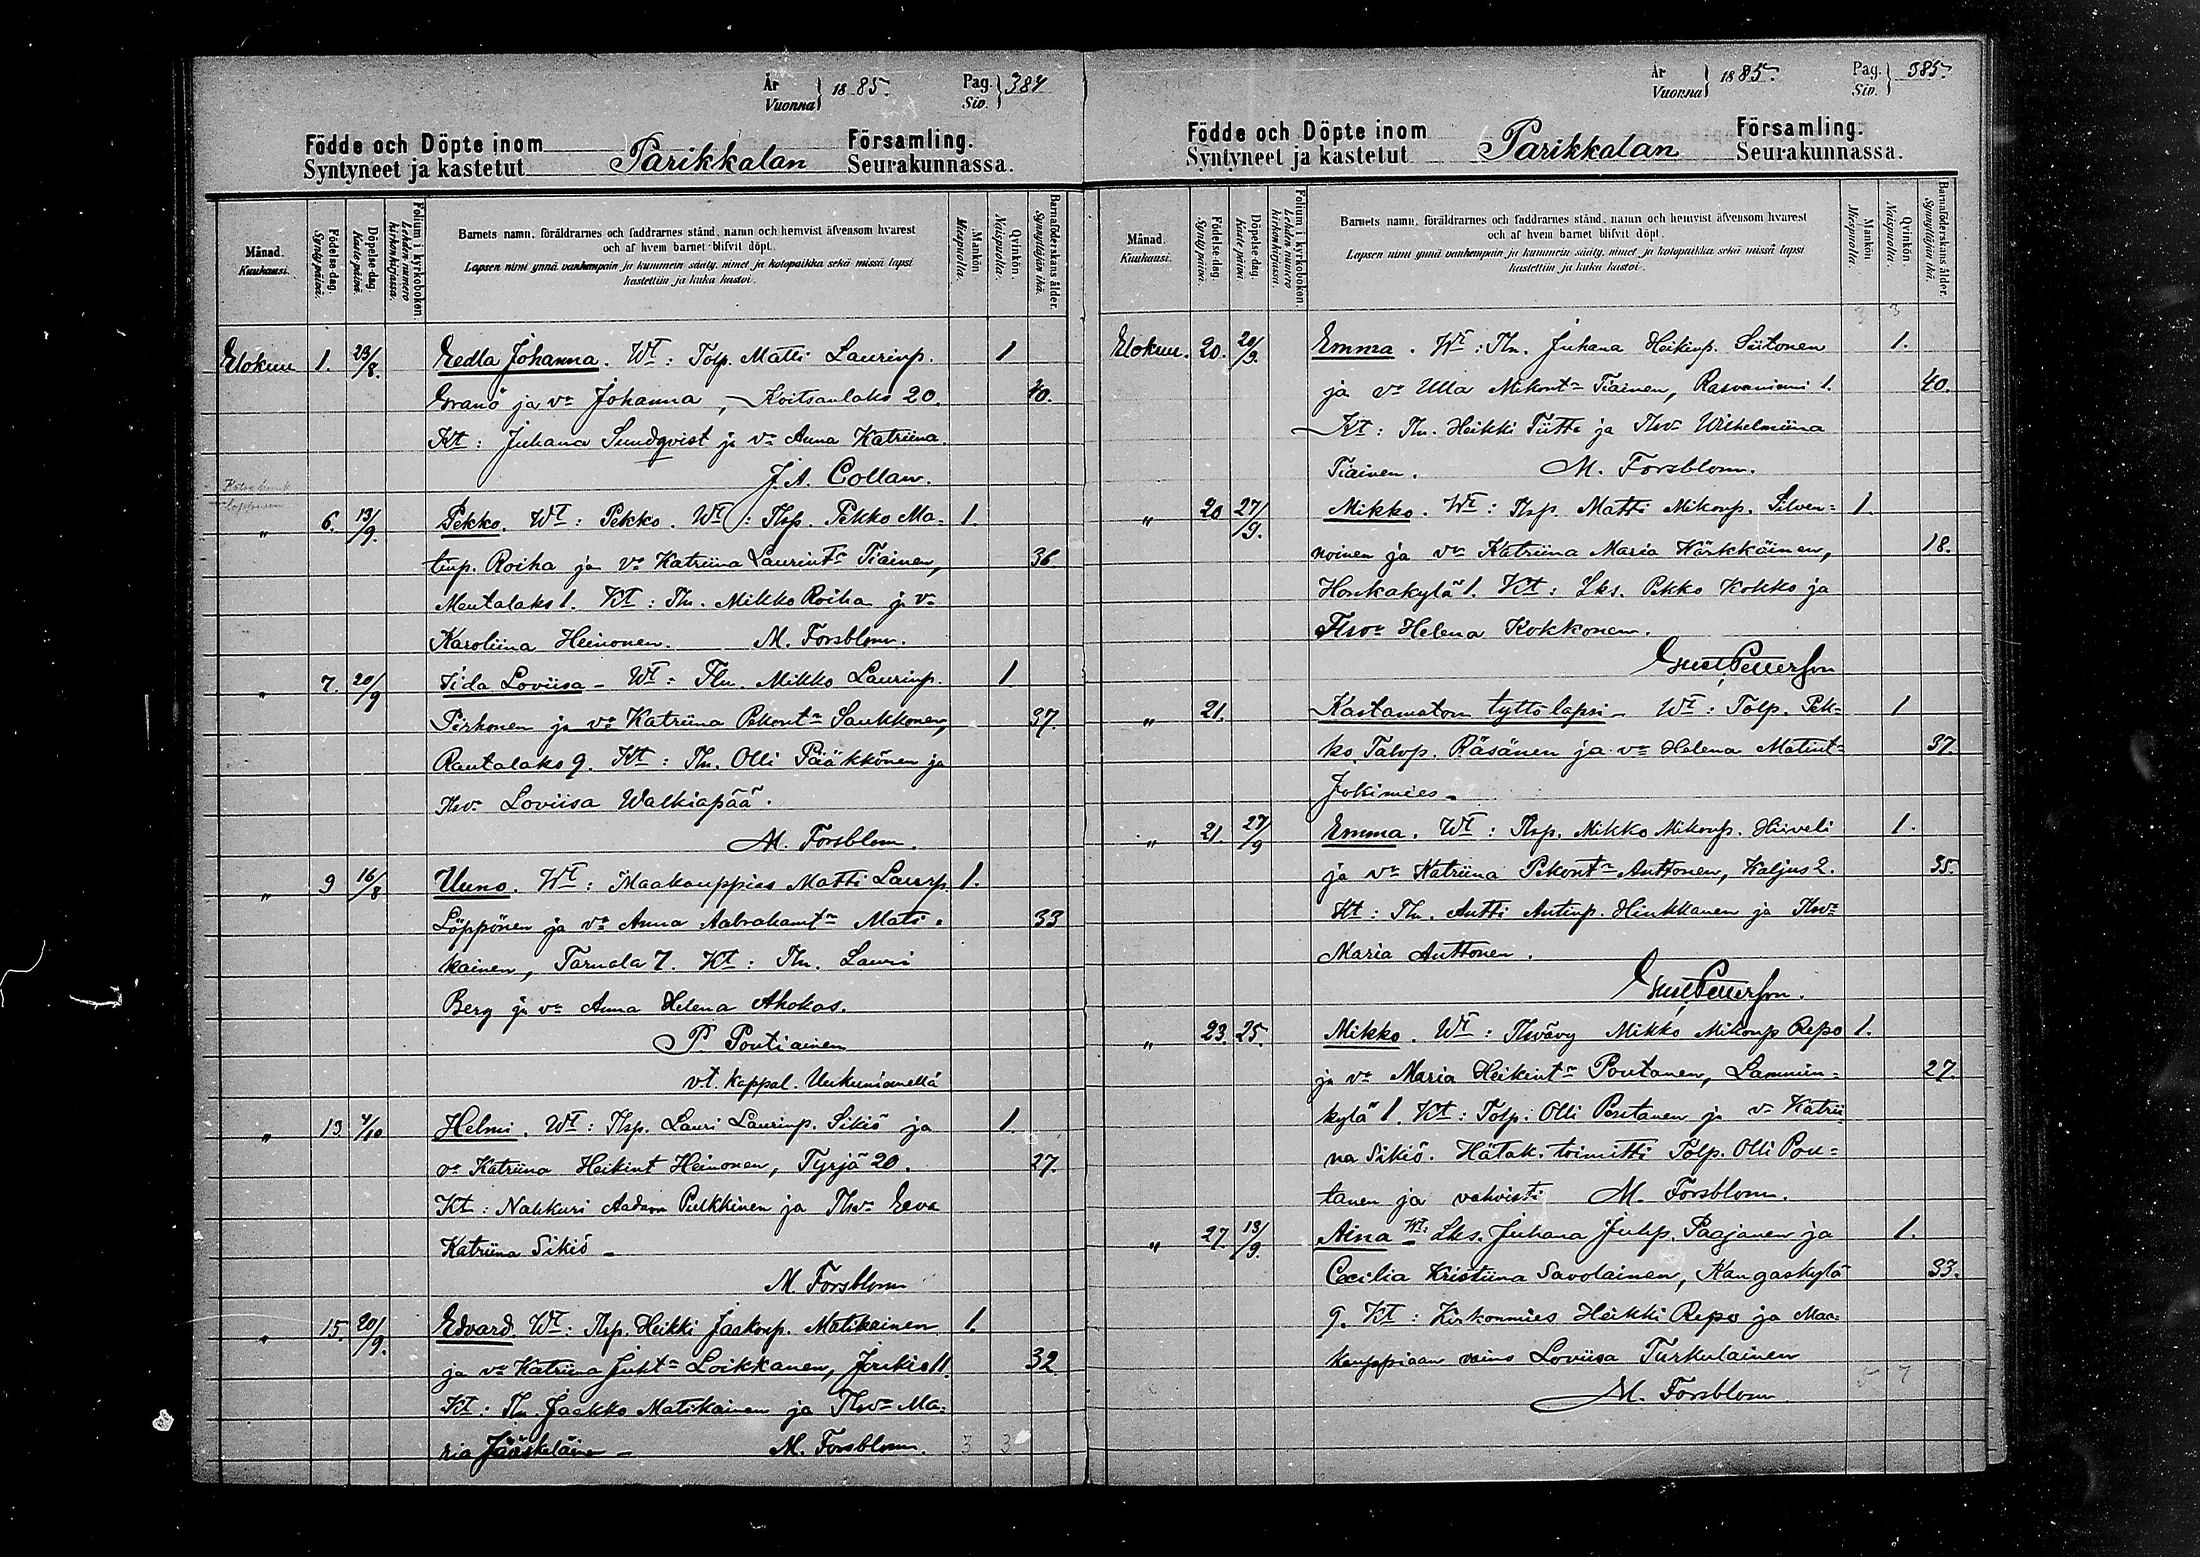 År
Vuonna } 1885. Pag.
Siv. } 384
Födde och Döpte inom Parikkalan Församling.
Syntyneet ja kastetut Seurakunnassa.
Månad.
Kuukausi.
Födelse-dag.
Syntypäivä.
Döpelse-dag.
Kaste-päivä.
Folium i kyrkoboken.
Lehden numero kirkonkirjassa.
Barnets namn, föräldrarnes och faddrarnes stånd, namn och hemvist äfvensom hvarest
och af hvem barnet blifvit döpt.
Lapsen nimi ynnä vanhempain ja kummein sääty, nimet ja kotopaikka sekä missä lapsi
kastettiin ja kuka kastoi.
Mankön.
Miespuolia.
Qvinkön.
Naispuolia.
Barnaföderskans ålder.
Synnyttäjän ikä.
Elokuu 1. 23/8. Eedla Johanna. Wt: Tolp. Matti Laurinp. 1
Granö ja vo Johanna, Koitsanlaks 20. 40.
Kt: Juhana Sundqvist ja vo Anna Katriina.
J. A. Collan.
" 6. 13/9. Pekko. Wt: Pekko. Wt: Tlsp. Pekko Ma- 1.
tinp. Roiha ja vo Katriina Laurint. Tiainen, 36
Mentalaks 1. Kt: Tln. Mikko Roiha ja vo
Karoliina Heinonen. M. Forsblom.
" 7. 20/9 Iida Loviisa - Wt: Tln. Mikko Laurinp. 1.
Pirhonen ja vo Katriina Pekont. Saukkonen, 37.
Rautalaks 9. Kt: Tln. Olli Pääkkönen ja
Tlwo Loviisa Walkiapää.
M. Forsblom.
" 9 16/8 Uuno. Wt: Maakauppias Matti Laurp. 1.
Löppönen ja vo Anna Aabrahamt. Mati- 33
kainen, Tarnala 7. Kt: Tln. Lauri
Berg ja vo Anna Helena Ahokas.
P. Pontiainen
v.t. kappal. Uukuniemellä
" 13 4/10 Helmi. Wt: Tlsp. Lauri Laurinp. Sikiö ja 1.
vo Katriina Heikint Heinonen, Tyrjä 20. 27.
Kt: Nahkuri Aadam Pulkkinen ja Tlwo Eeva
Katriina Sikiö -
M. Forsblom
" 15. 20/9. Edvard Wt: Tlsp. Heikki Jaakonp. Matikainen 1.
ja vo Katriina Juht. Loikkanen, Joukio 11. 32
Kt: Tln Jaakko Matikainen ja Tlwo Ma-
ria Jääskeläinen - M. Forsblom. 3 3
År
Vuonna } 1885. Pag.
Siv. } 385.
Födde och Döpte inom Parikkalan Församling.
Syntyneet ja kastetut Seurakunnassa.
Månad.
Kuukausi.
Födelse-dag.
Syntypäivä.
Döpelse-dag.
Kaste-päivä.
Folium i kyrkoboken.
Lehden numero kirkonkirjassa.
Barnets namn, föräldrarnes och faddrarnes stånd, namn och hemvist äfvensom hvarest
och af hvem barnet blifvit döpt.
Lapsen nimi ynnä vanhempain ja kummein sääty, nimet ja kotopaikka sekä missä lapsi
kastettiin ja kuka kastoi.
Mankön.
Miespuolia.
Qvinkön.
Naispuolia.
Barnaföderskans ålder.
Synnyttäjän ikä.
3 3
Elokuu. 20. 20/9. Emma. Wt: Tln. Juhana Heikinp. Siitonen 1.
ja vo Ulla Mikont. Tiainen, Rasvaniemi 1. 40.
Kt: Tln. Heikki Tiitta ja Tlwo Wilhelmiina
Tiainen. M. Forsblom.
" 20 27/9. Mikko. Wt: Tlsp. Matti Mikonp. Silven- 1.
noinen ja vo Katriina Maria Härkkäinen, 18.
Honkakylä 1. Kt: Lks. Pekko Kokko ja
Tlwo Helena Kokkonen.
Gust Petterson
" 21. Kastamaton tyttö lapsi - Wt: Tolp. Pek- 1
ko Talvp. Räsänen ja vo Helena Matint. 37.
Jokimies -
" 21. 27/9 Emma. Wt: Tlsp. Mikko Mikonp. Hiiveli 1.
ja vo Katriina Pekont. Anttonen, Kaljus 2. 35.
Kt: Tln. Antti Antinp. Hinkkanen ja Tlwo
Maria Anttonen.
Gust Petterson.
" 23. 25. Mikko. Wt: Tlwävy Mikko Mikonp Repo 1.
ja vo Maria Heikint. Poutanen, Lammin- 27.
kylä 1. Kt: Tolp. Olli Poutanen ja vo Katrii-
na Sikiö. Hätäk. toimitti Tolp. Olli Pou-
tanen ja vahvisti M. Forsblom.
" 27. 13/9. Aina Wt: Lks. Juhana Juhp. Paajanen ja 1.
Cecilia Kristiina Savolainen, Kangaskylä 33.
9. Kt: Kirkonmies Heikki Repo ja Maa-
kauppiaan vaimo Loviisa Turkulainen
M. Forsblom 5 7